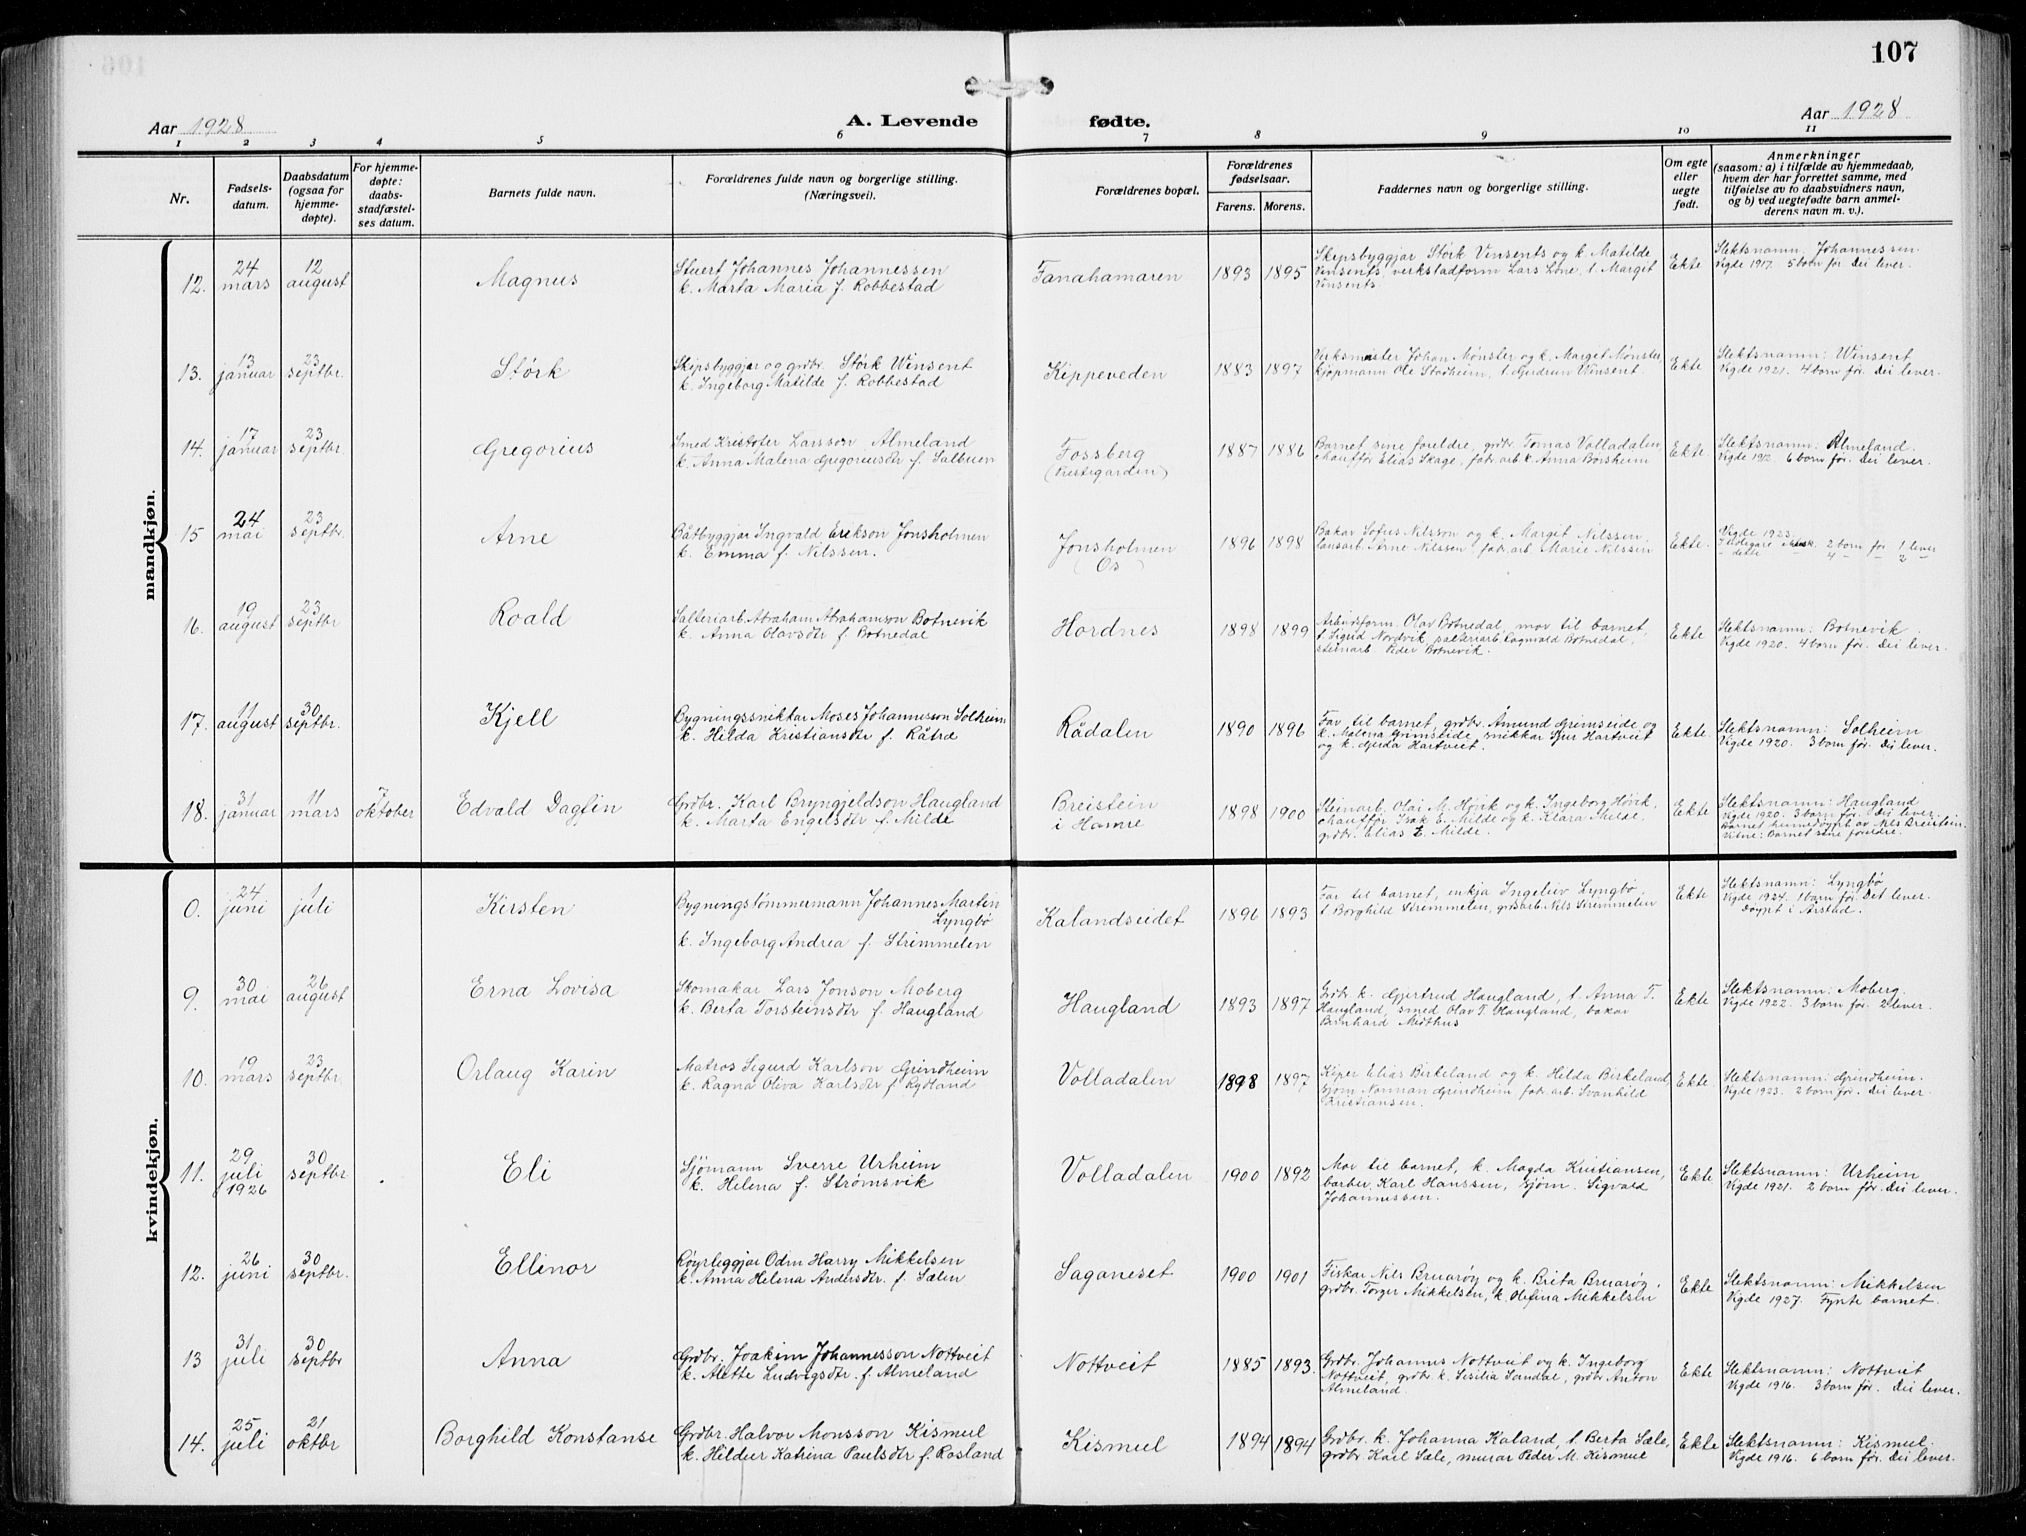 107
Aar 1928
A. Levende fødte.
Aar 1928
1 2 3 4 5 6 7 8 9 10 11
Nr.
Fødsels-
datum.
Daabsdatum
(ogsaa for
hjemme-
døpte).
For hjemme-
døpte:
daabs-
stadfæstel-
ses datum.
Barnets fulde navn.
Forældrenes fulde navn og borgerlige stilling.
(Næringsvei).
Forældrenes bopæl.
Forældrenes
fødselsaar.
Farens. Morens.
Faddernes navn og borgerlige stilling.
Om egte
eller
uegte
født.
Anmerkninger
(saasom: a) i tilfælde av hjemmedaab,
hvem der har forrettet samme, med
tilføielse av to daabsvidners navn,
og b) ved uegtefødte barn anmel-
derens navn m. v.).
mandkjøn.
12.
24
mars
12
august
Magnus
Stuert Johannes Johannessen
k. Marta Maria f. Robbestad
Fanahamaren
1893 1895
Skipsbyggjar Størk Vinsents og k. Matilde
Vinsents, verkstadform Lars Lone, t. Margit
Vinsents
Ekte
Slektsnamn: Johannessen.
Vigde 1917. 5 born før. Dei lever.
13.
13
januar
23
septbr.
Størk
Skipsbyggjar og grdbr. Størk Winsent
k. Ingeborg Matilde f. Robbestad
Kippeveden
1883 1897
Verksmester Johan Mønster og k. Marget Mønster
kjøpmann Ole Stadheim, t. Gudrun Winsent.
Ekte
Slektsnamn: Winsent
Vigde 1921. 4 born før. Dei lever.
14.
17
januar
23
septbr.
Gregorius
Smed Kristofer Larsson Almeland
k. Anna Malena Gregoriusdtr f. Salbuen
Fossberg
(Prestegarden)
1887 1886
Barnet sine foreldre, grdbr. Tomas Volladalen,
chauffør Elias Skage, fabr.arb. k. Anna Børsheim
Ekte
Slektsnamn: Almeland.
Vigde 1912. 6 born før. Dei lever.
15
24
mai
23
septbr.
Arne
Båtbyggjar Ingvald Erikson Jonsholmen
k. Emma f. Nilssen.
Jonsholmen
(Os)
1896 1898
Bakar Sofus Nilsson og k. Margit Nilssen,
Arne Nilssen, fabr.arb Marie Nilssen
Ekte.
Vigde 1923.
2 born før 1 lever
- dette 4 - - 2 -
16.
19
august
23
septbr
Roald
Salteriarb. Abraham Abrahamson Botnevik
k. Anna Olavsdtr f. Botnedal
Hordnes
1898 1899
Arbeidsform. Olav Botnedal, mor til barnet,
t. Sigrid Nordvik, salteriarb Ragnvald Botnedal,
steinarb Peder Botnevik.
Ekte
Slektsnamn: Botnevik.
Vigde 1920. 4 born før. Dei lever.
17.
11
august
30
septbr.
Kjell
Bygningssnikkar Moses Johannesson Solheim
k. Hilda Kristiansdtr f. Råtræ
Rådalen
1890 1896
Far til barnet, grdbr. Åmund Grimseide og
k. Malena Grimseide, snikkar Sjur Hartveit
og k. Gjerda Hartveit.
Ekte.
Slektsnamn: Solheim
Vigde 1920. 3 born før. Dei lever.
18.
31
januar
11
mars
7
oktober
Edvald Dagfin
Grdbr. Karl Bryngjeldson Haugland
k. Marta Engelsdtr f. Milde
Breistein
i Hamre
1898 1900
Steinarb. Olai M. Høvik og k. Ingeborg Høvik,
chauffør Isak E. Milde og k. Klara Milde,
grdbr. Elias E. Milde.
Ekte
Slektsnamn: Haugland
Vigde 1920. 3 born før. Dei lever.
Barnet heimedøypt av Nils Breistein.
Vitne: Barnet sine foreldre.
kvindekjøn.
0.
24
juni
1
juli
Kirsten
Bygningstømmermann Johannes Martin
Lyngbø
k. Ingeborg Andrea f. Strimmelen
Kalandseidet
1896 1893
Far til barnet, enkja Ingeleiv Lyngbø,
t. Borghild Strimmelen, grdsarb. Nils Strimmelen
Ekte
Slektsnamn: Lyngbø
Vigde 1924. 1 born før. Det lever.
Døypt i Årstad.
9.
30
mai
26
august
Erna Lovisa
Skomakar Lars Jonson Moberg
k. Berta Torsteinsdtr f. Haugland
Haugland
1893 1897
Grdbr k. Gjertrud Haugland, t. Anna T.
Haugland, smed Olav T. Haugland, bakar
Bernhard Midthus
Ekte
Slektsnamn: Moberg.
Vigde 1922. 3 born før. 2 lever.
10.
19
mars
23
septbr
Orlaug Karin
Matros Sigurd Karlson Grindheim
k. Ragna Oliva Karlsdtr f. Rydland
Volladalen
1898 1897
Køper Elias Birkeland og k. Hilda Birkeland,
sjøm Norman Grindheim, fabr.arb. Svanhild
Kristiansen.
Ekte.
Slektsnamn: Grindheim.
Vigde 1923. 2 born før. Dei lever.
11.
29
juli
1926
30
septbr
Eli
Sjømann Sverre Urheim
k. Helena f. Strømsvik
Volladalen
1900 1892
Mor til barnet, k. Magda Kristiansen,
barber Karl Hanssen, sjøm. Sigvald
Johannessen.
Ekte
Slektsnamn: Urheim
Vigde 1921. 2 born før. Dei lever.
12.
26
juni
30
septbr.
Ellinor
Røyrleggjar Odin Harry Mikkelsen
k. Anna Helena Andersdtr. f. Sælen
Saganeset
1900 1901
Fiskar Nils Bruarøy og k. Brita Bruarøy,
grdbr. Torger Mikkelsen, k. Olefina Mikkelsen
Ekte
Slektsnamn: Mikkelsen
Vigde 1927. Fyrste barnet.
13
31
juli
30
septbr
Anna
Grdbr. Joakim Johannesson Nottveit
k. Alette Ludvigsdtr. f. Almeland
Nottveit
1885 1893.
Grdbr. Johannes Nottveit og k. Ingeborg
Nottveit, grdbr k. Sesilia Sandal, grdbr Anton
Almeland.
Ekte
Slektsnamn: Nottveit
Vigde 1916. 3 born før. Dei lever.
14.
25
juli
21
oktbr
Borghild Konstanse
Grdbr. Halvor Monsson Kismul
k. Hildur Katrina Paulsdtr f. Røsland
Kismul
1894 1894
Grdbr. k. Johanna Kaland, t. Berta Sæle,
grdbr Karl Sæle, murar Peder M. Kismul
Ekte
Slektsnamn: Kismul.
Vigde 1916. 6 born før. Dei lever.